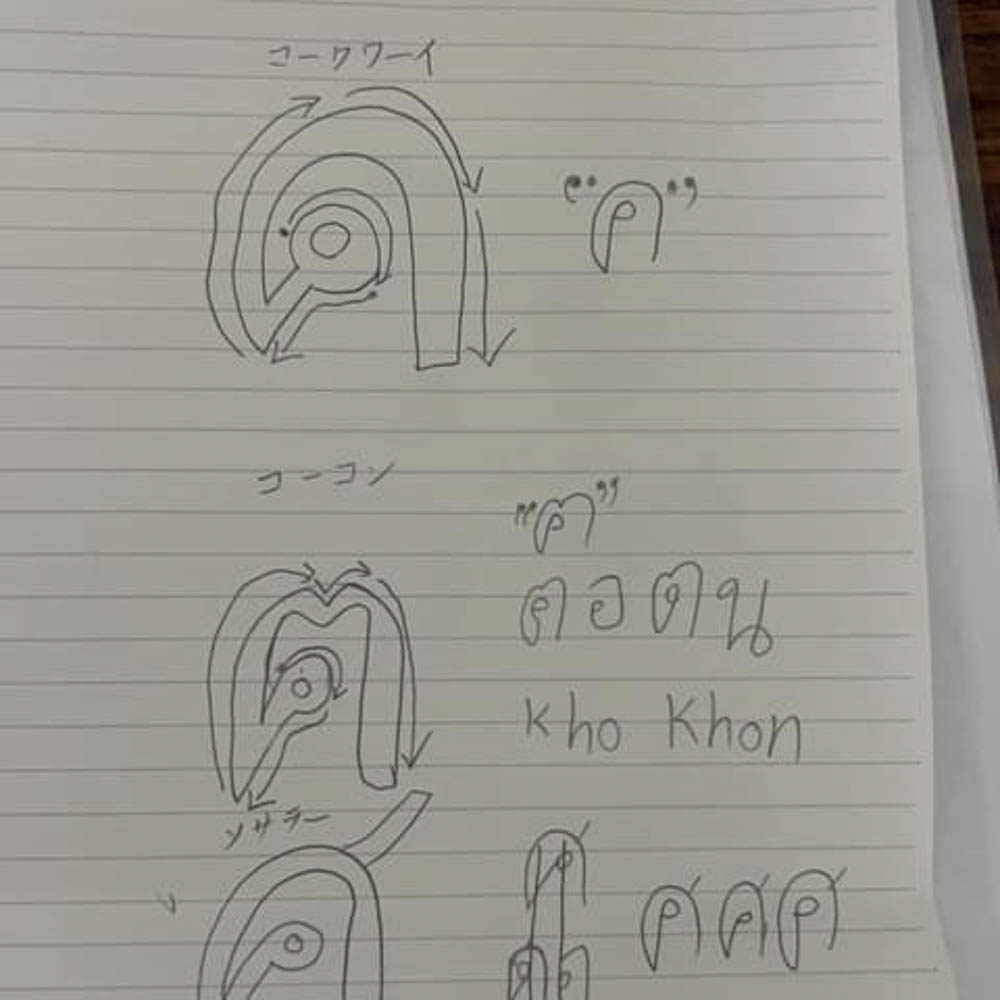 コークワーイ
"ค"
コーコン
"ฅ"
ฅ อ ฅ น
kho Khon
ソサラー
ศ ศ ศ